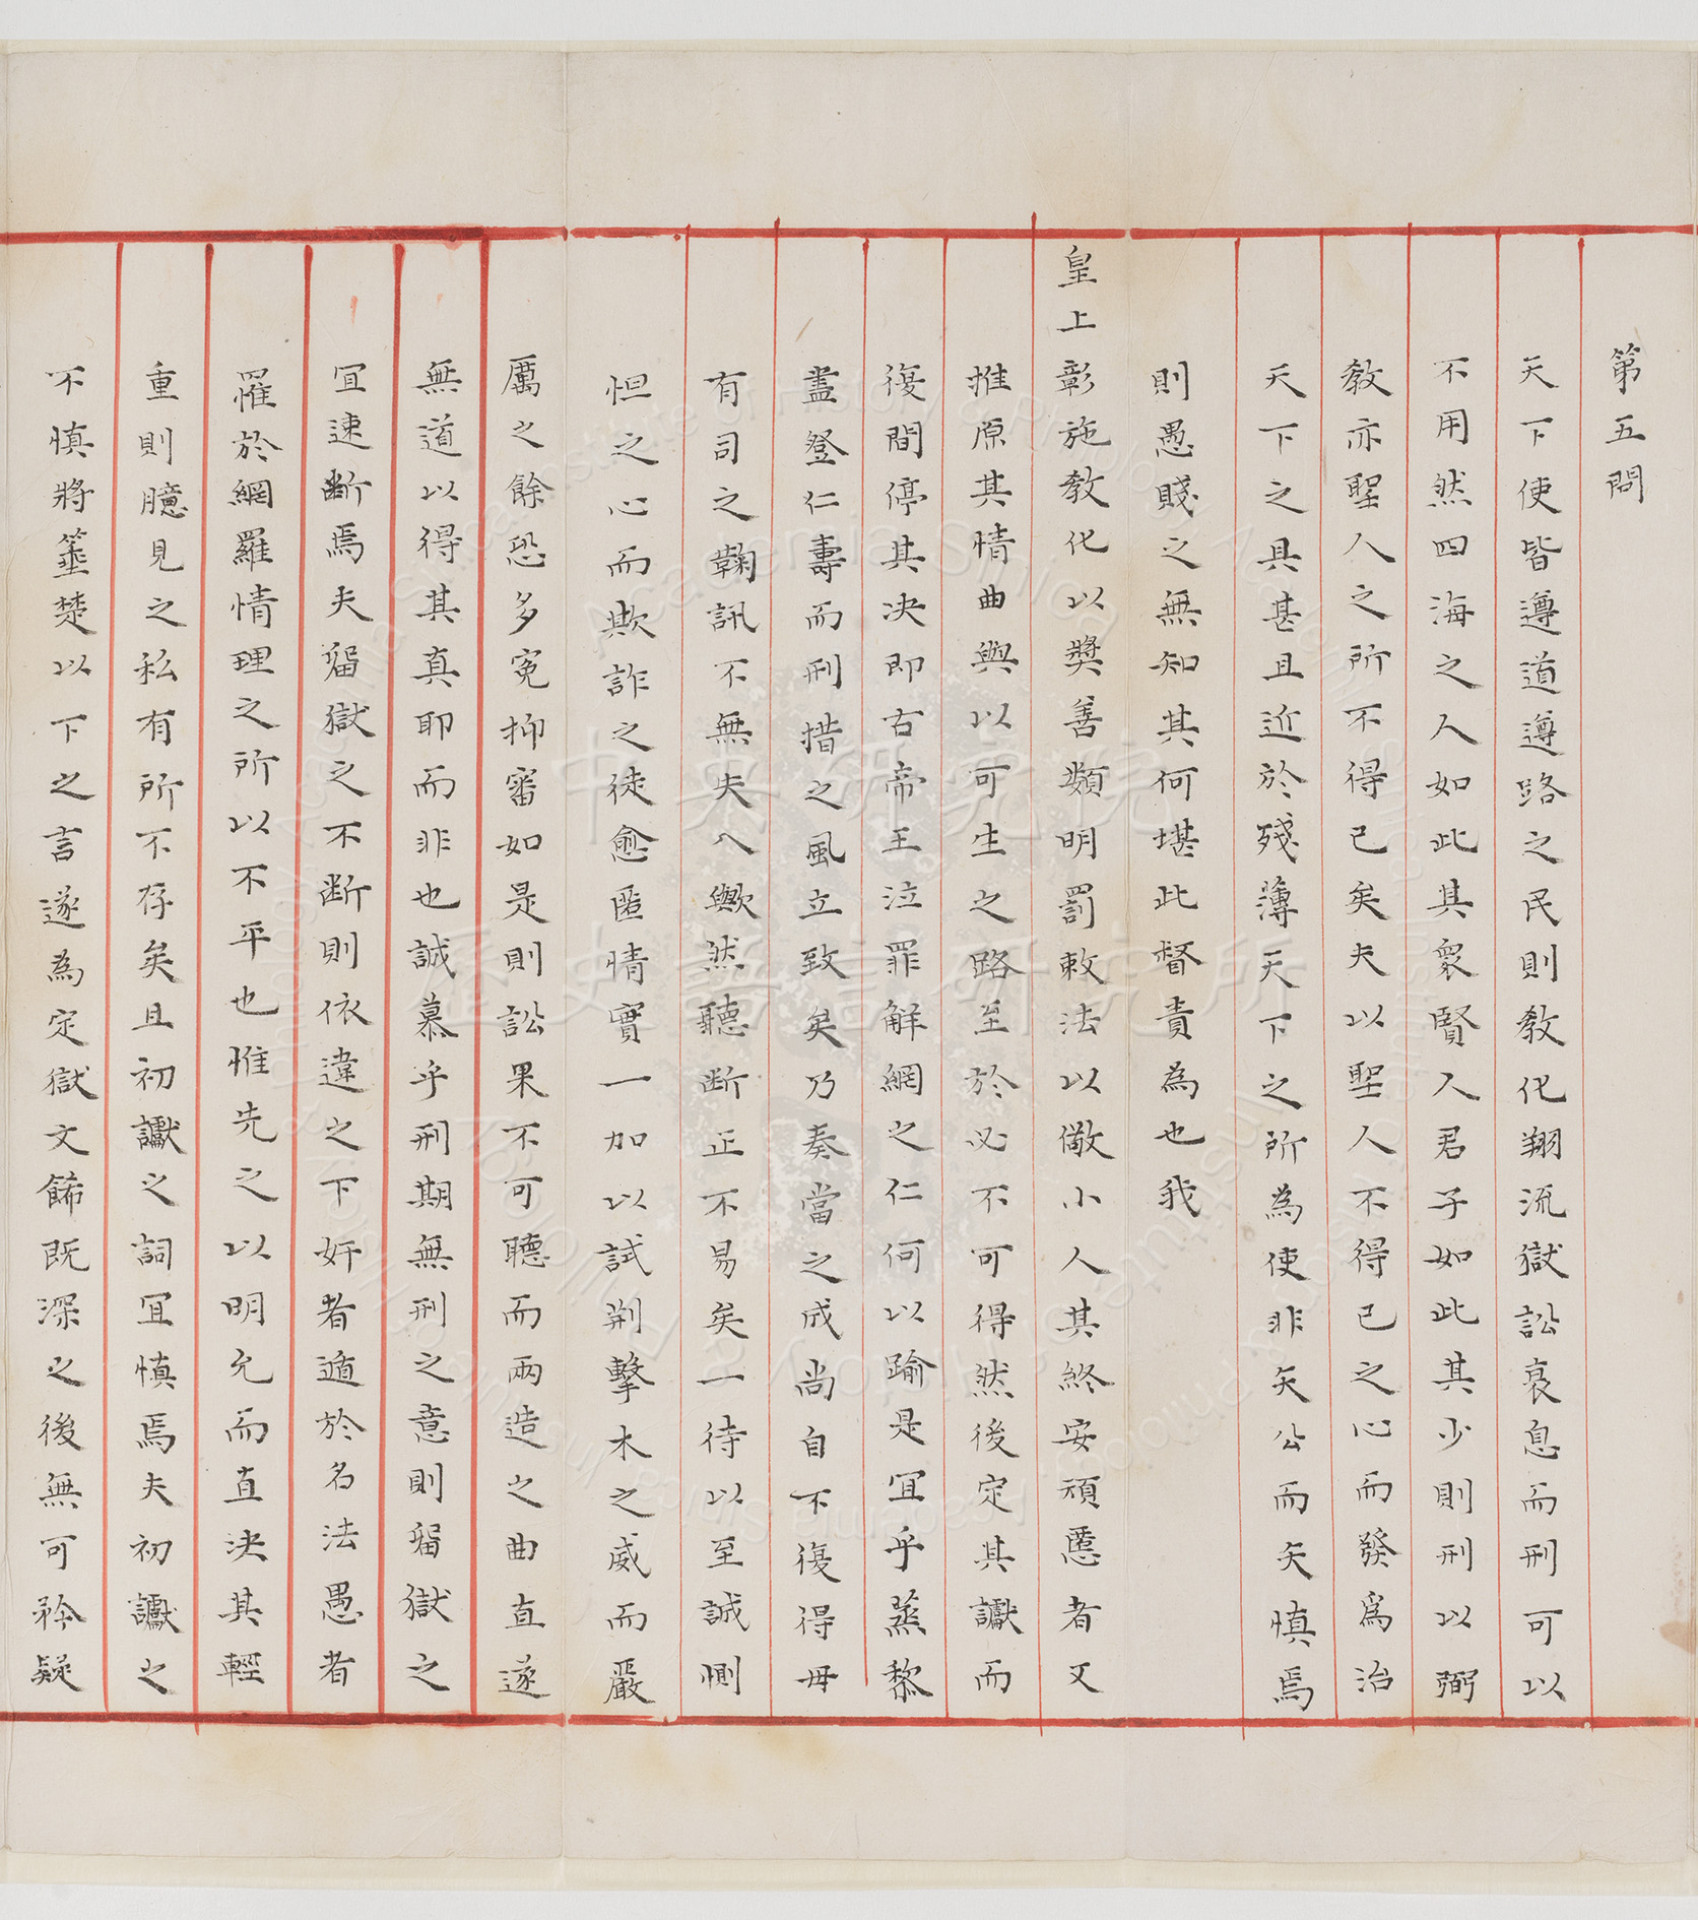 第五問
天下使皆遵道遵路之民則教化翔流獄訟衰息而刑可以
不用然四海之人如此其衆賢人君子如此其少則刑以弼
教亦聖人之所不得已矣夫以聖人不得已之心而發爲治
天下之具甚且近於殘薄天下之所為使非矢公而矢慎焉
則愚賤之無知其何堪此督責為也我
皇上彰施教化以奬善類明罰敕法以儆小人其終安頑慝者又
推原其情曲與以可生之路至於必不可得然後定其讞而
復間停其决即古帝王泣罪解網之仁何以踰是宜乎蒸黎
盡登仁壽而刑措之風立致矣乃奏當之成尚自下復得毋
有司之鞠訊不無失入歟然聽断正不易矣一待以至誠惻
怛之心而欺詐之徒愈匿情實一加以試荆擊木之威而嚴
厲之餘恐多寃抑審如是則訟果不可聽而兩造之曲直遂
無道以得其真耶而非也誠慕乎刑期無刑之意則留獄之
宜速断焉夫留獄之不断則依違之下奸者遁於名法愚者
罹於網羅情理之所以不平也惟先之以明允而直决其輕
重則臆見之私有所不存矣且初讞之詞宜慎焉夫初讞之
不慎將箠楚以下之言遂為定獄文餙既深之後無可矜疑
中央研究院
歷史語言研究所